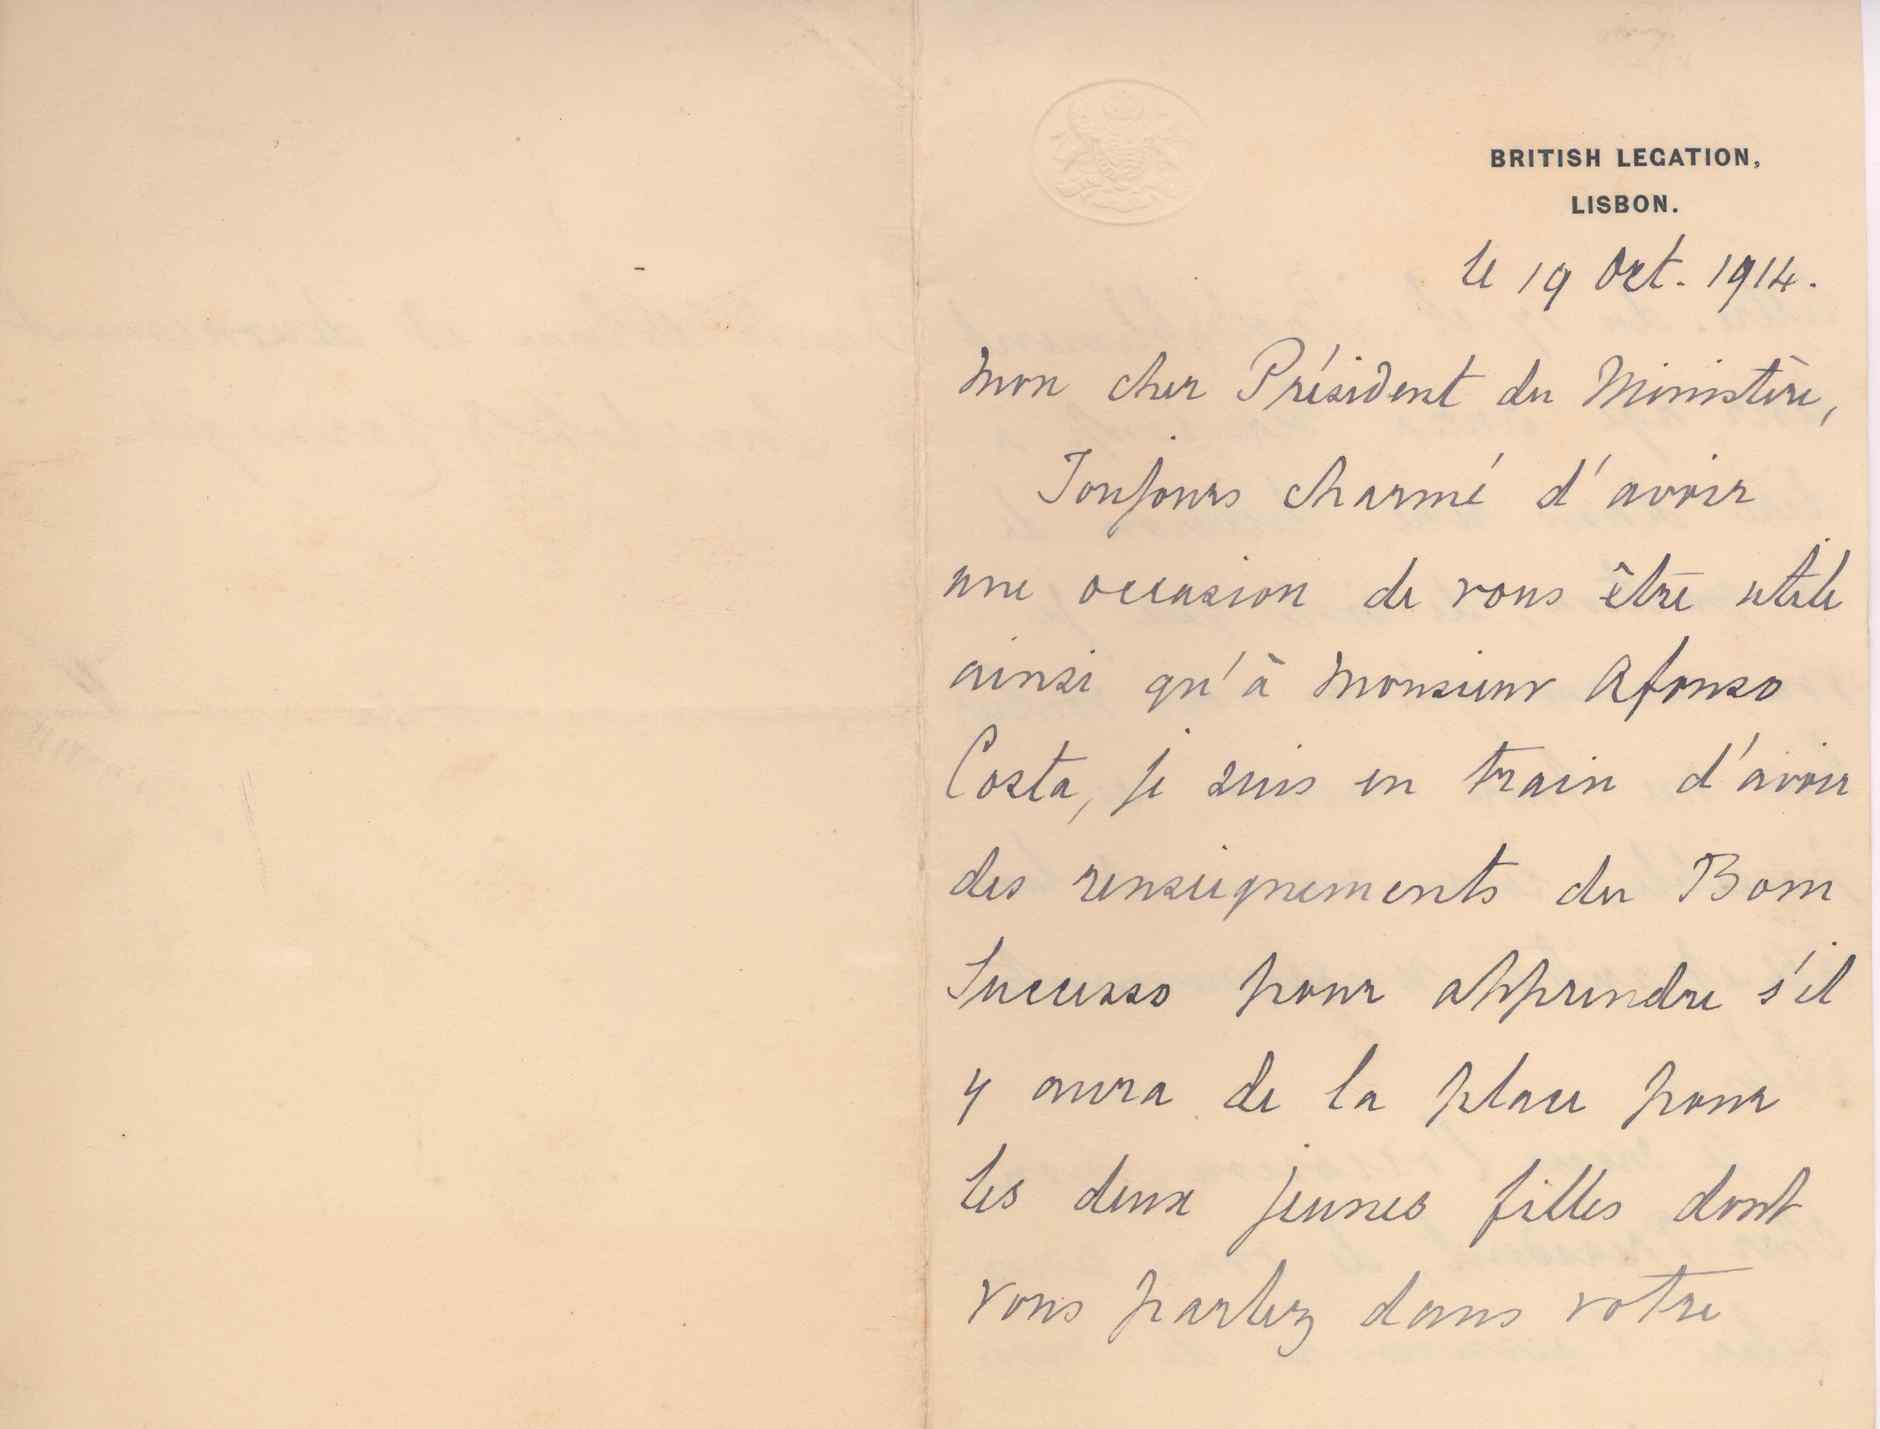 BRITISH LEGATION,
LISBON.
le 19 Oct. 1914.
Mon cher Président du Ministère,
Toujours charmé d'avoir
une occasion de vous être utile
ainsi qu'à Monsieur Afonso
Costa, je suis en train d'avoir
des renseignements du Bom
Sucesso pour apprendre s'il
y aura de la place pour
les deux jeunes filles dont
vous parlez dans votre